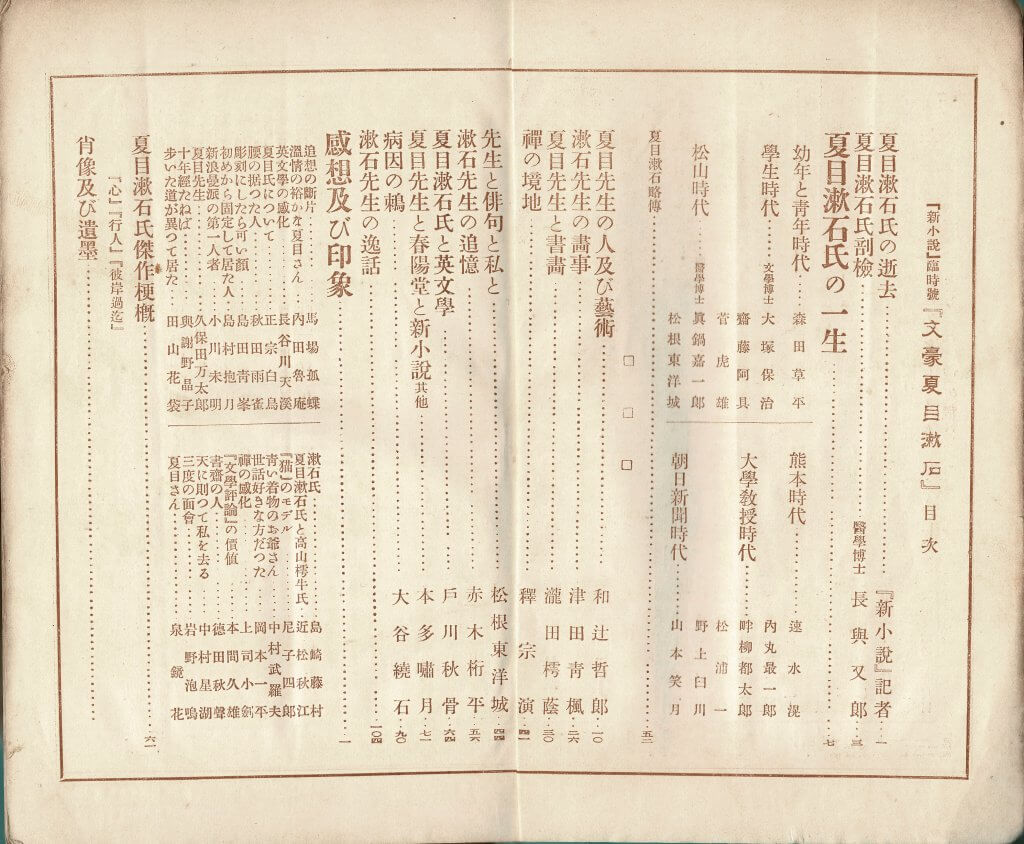 『新小說』臨時號『文豪夏目漱石』目次
夏目漱石氏の逝去……『新小說』記者…一
夏目漱石氏剖檢……醫學博士 長與又郎…三
夏目漱石氏の一生……七
幼年と靑年時代……森田草平
學生時代……文學博士 大塚保治
齋藤阿具
松山時代……菅虎雄
醫學博士 眞鍋嘉一郎
松根東洋城
熊本時代……速水滉
內丸最一郎
大學敎授時代……畔柳都太郎
松浦一
野上臼川
朝日新聞時代……山本笑月
夏目漱石略傳……五二
□□□
夏目先生の人及び藝術……和辻哲郎…一〇
漱石先生の畫事……津田靑楓…二六
夏目先生と書畫……瀧田樗蔭…三〇
禪の境地……釋宗演…四一
先生と俳句と私と……松根東洋城…四四
漱石先生の追憶……赤木桁平…五六
夏目漱石氏と英文學……戶川秋骨…六四
夏目先生と春陽堂と新小說其他……本多嘯月…七一
病因の鵜……大谷繞石…九〇
漱石先生の逸話……一〇四
感想及び印象……一
追想の斷片……馬場孤蝶
溫情の裕かな夏目さん…內田魯庵
英文學の感化……長谷川天溪
夏目氏について……正宗白鳥
腰の据つた人……秋田雨雀
彫刻にしたら可い顏……島田靑峯
初めから固定して居た人…島村抱月
新浪曼派の第一人者…小川未明
夏目先生……久保田万太郞
十年經たねば……與謝野晶子
步いた道が異つて居た…田山花袋
漱石氏……島崎藤村
夏目漱石氏と高山樗牛氏…近松秋江
『猫』のモデル……尼子四郎
靑い着物のお爺さん…中村武羅夫
世話好きな方だつた…岡本一平
禪の感化……上司小劍
『文學評論』の價値…本間久雄
書齋の人……德田秋聲
天に則つて私を去る…中村星湖
三度の面會……岩野泡鳴
夏目さん……泉鏡花
夏目漱石氏傑作梗槪……六一
『心』『行人』『彼岸過迄』
肖像及び遺墨……